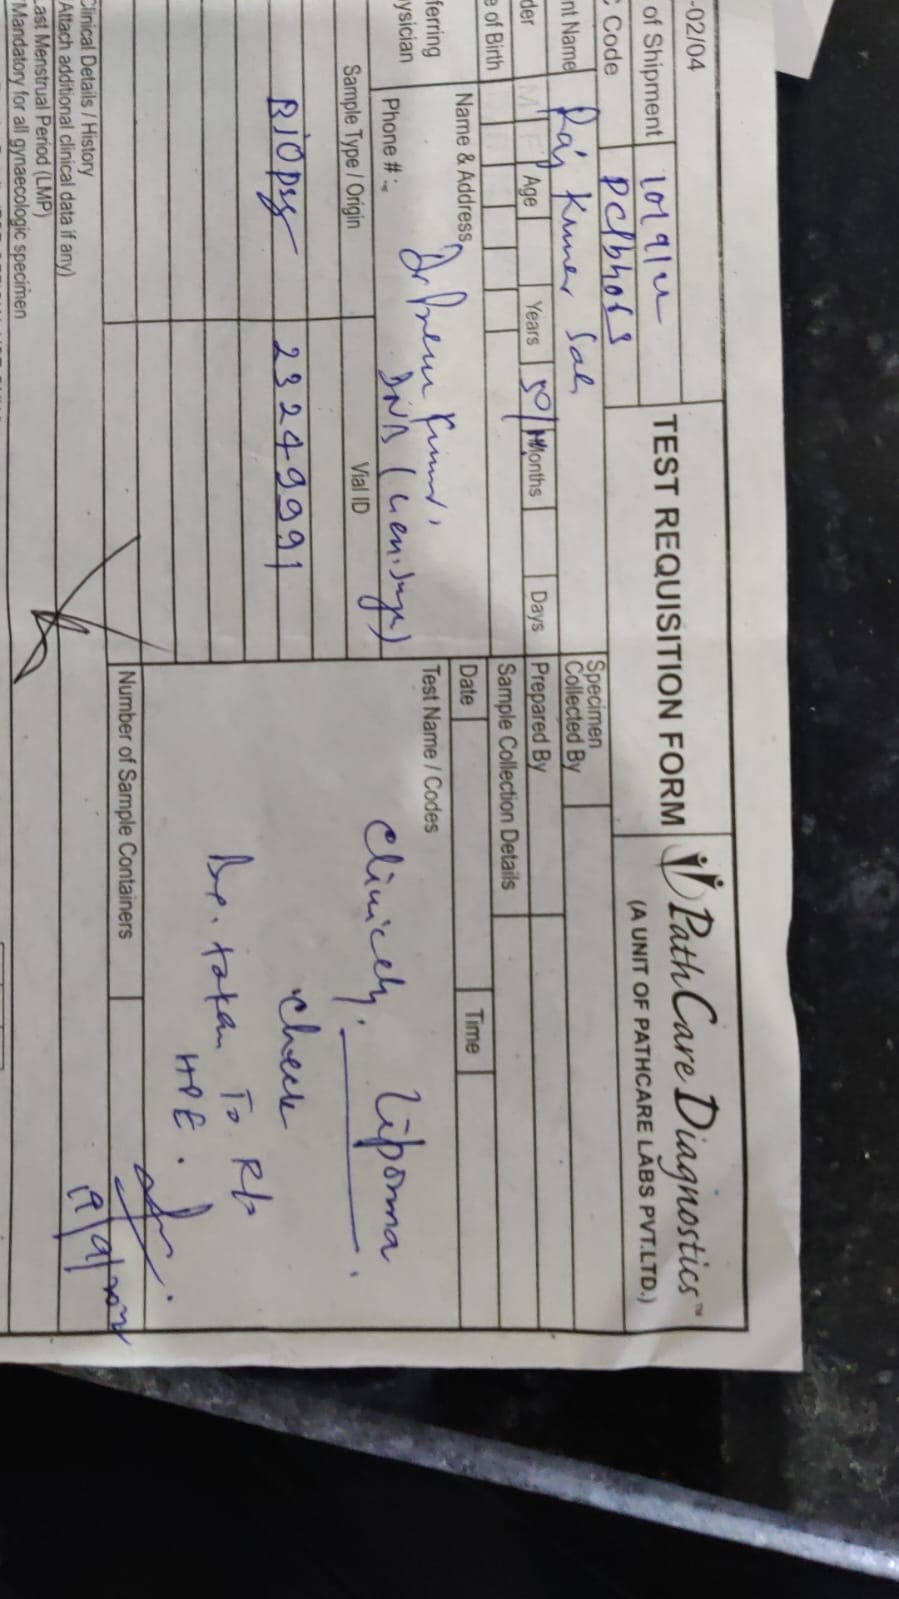 -02/04
TEST REQUISITION FORM
PathCare Diagnostics™
(A UNIT OF PATHCARE LABS PVT.LTD.)
of Shipment
Code
nt Name Raj Kumar Sah
der M F Age Years 50/M Months Days
e of Birth
ferring
ysician
Name & Address
Dr Prem Kumar
DNB (Gen. Surge)
Phone # :-
Specimen
Collected By
Prepared By
Sample Collection Details
Date Time
Sample Type / Origin Vial ID
BIOPsy 23249991
Test Name / Codes
Clinicely. Lipoma
Check
Bx. taken To R/o
HPE.
Number of Sample Containers
Clinical Details / History
Attach additional clinical data if any)
Last Menstrual Period (LMP)
Mandatory for all gynaecologic specimen